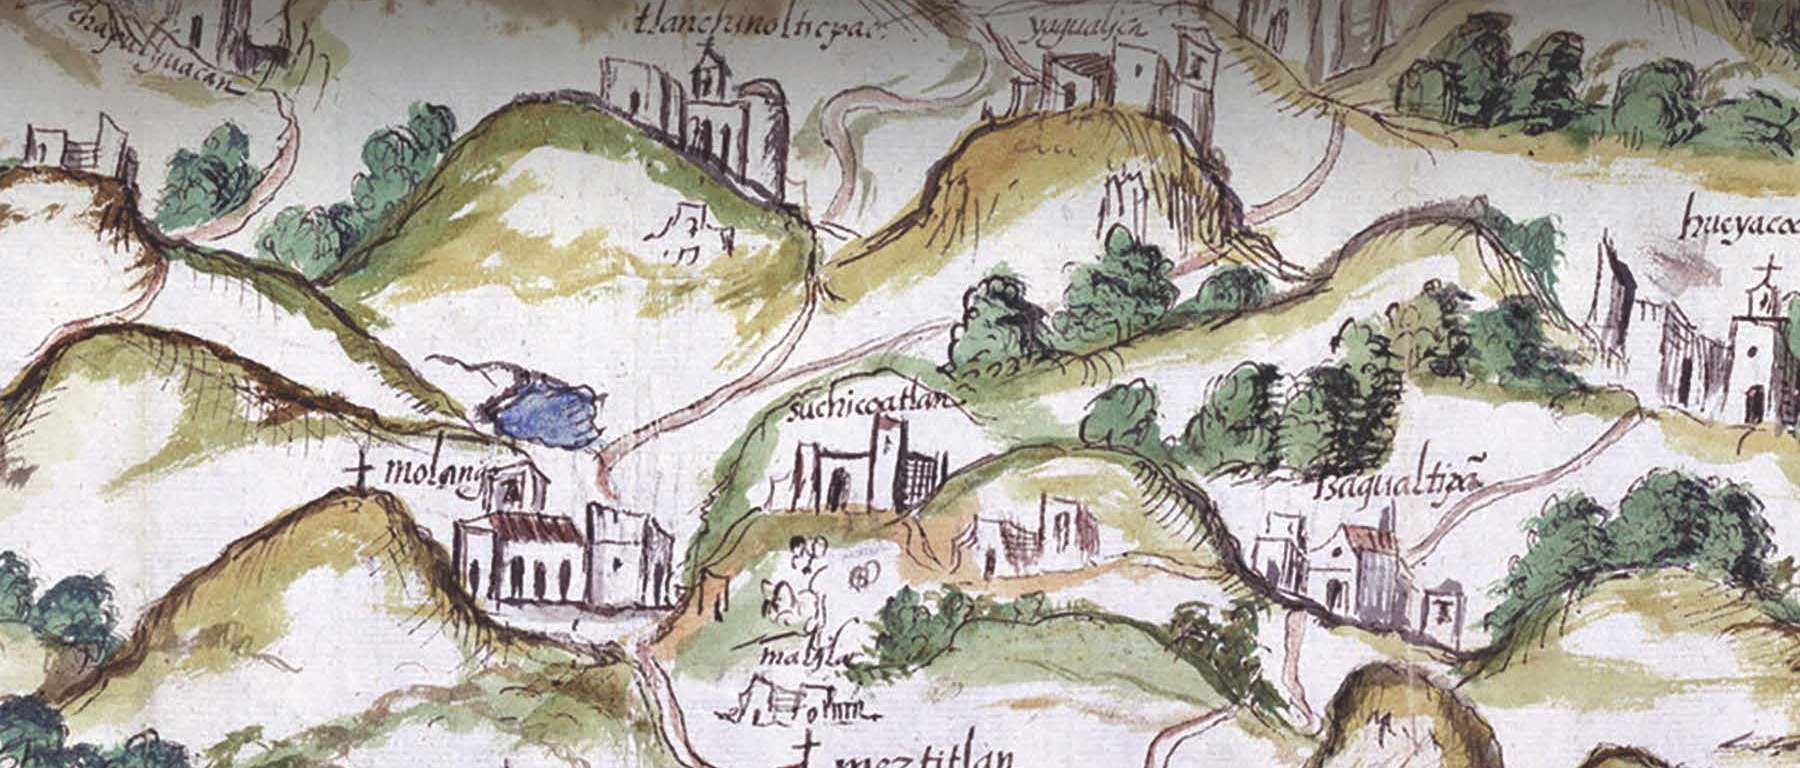 chapulhuacan
tlanchinolticpac
yagualica
hueyacoc
suchicoatlan
molango
tzagualtipā
malila
meztitlan